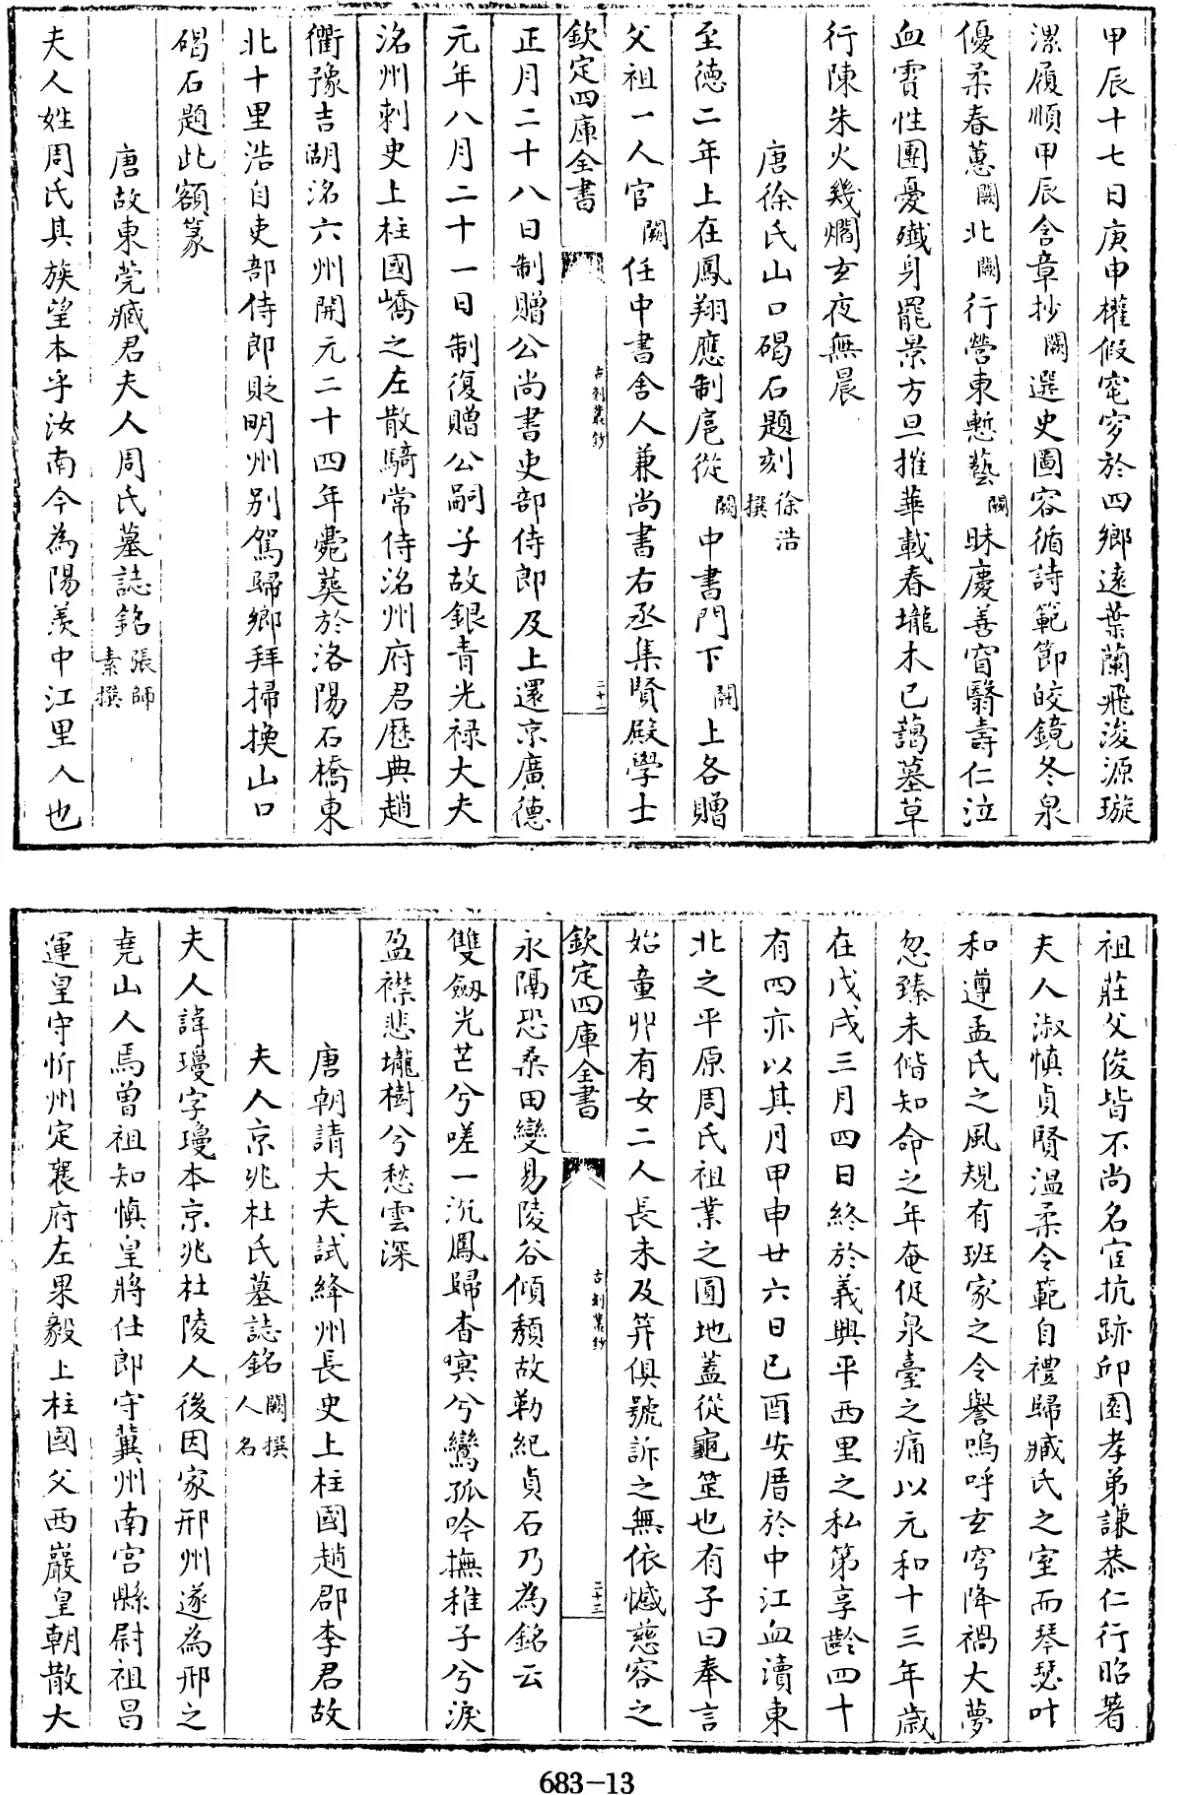 甲辰十七日庚申權假窀穸於四鄉遠葉蘭飛浚源璇
潔履順甲辰含章抄闕選史圖容循詩範節皎鏡冬泉
優柔春蕙闕北闕行營東慙藝闕昧慶善窅翳壽仁泣
血霣性團憂殱身罷景方旦摧華載春壠木已藹墓草
行陳朱火幾燗玄夜無晨
唐徐氏山口碣石題刻徐浩撰
至德二年上在鳳翔應制扈從闕中書門下闕上各贈
父祖一人官闕任中書舍人兼尚書右丞集賢殿學士
欽定四庫全書 古刻叢鈔 二十二
正月二十八日制贈公尚書吏部侍郎及上還京廣德
元年八月二十一日制復贈公嗣子故銀青光禄大夫
洺州刺史上柱國嶠之左散騎常侍洺州府君歷典趙
衢豫吉湖洺六州開元二十四年薨葬於洛陽石橋東
北十里浩自吏部侍郎貶明州别駕歸鄉拜掃換山口
碣石題此額篆
唐故東莞臧君夫人周氏墓誌銘張師素撰
夫人姓周氏其族望本乎汝南今為陽羨中江里人也
祖莊父俊皆不尚名宦抗跡邱園孝弟謙恭仁行昭著
夫人淑慎貞賢温柔令範自禮歸臧氏之室而琴瑟叶
和遵孟氏之風規有班家之令譽嗚呼玄穹降禍大夢
忽臻未偕知命之年奄促泉臺之痛以元和十三年歲
在戊戌三月四日終於義興平西里之私第享齡四十
有四亦以其月甲申廿六日已酉安厝於中江血瀆東
北之平原周氏祖業之圓地蓋從龜筮也有子曰奉言
始童丱有女二人長未及笄俱號訴之無依憾慈容之
欽定四庫全書 古刻叢鈔 二十三
永隔恐桑田變易陵谷傾頽故勒紀貞石乃為銘云
雙劔光芒兮嗟一沉鳳歸杳㝠兮鸞孤吟撫稚子兮淚
盈襟悲壠樹兮愁雲深
唐朝請大夫試絳州長史上柱國趙郡李君故
夫人京兆杜氏墓誌銘闕撰人名
夫人諱㻴字㻴本京兆杜陵人後因家邢州遂為邢之
堯山人焉曾祖知慎皇將仕郎守冀州南宮縣尉祖昌
運皇守忻州定襄府左果毅上柱國父西巖皇朝散大
683-13